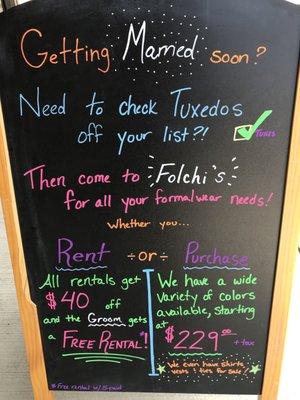 Getting Married soon?
Need to check Tuxedos
off your list?!
TUXES
Then come to Folchi's
for all your formalwear needs!
Whether you...
Rent ÷or÷ Purchase
All rentals get
$40 off
and the Groom gets
a FREE RENTAL*!
We have a wide
Variety of colors
available, starting
at
$229.00 + tax
We even have shirts,
vests & ties for sale
*Free rental w/ 5 paid